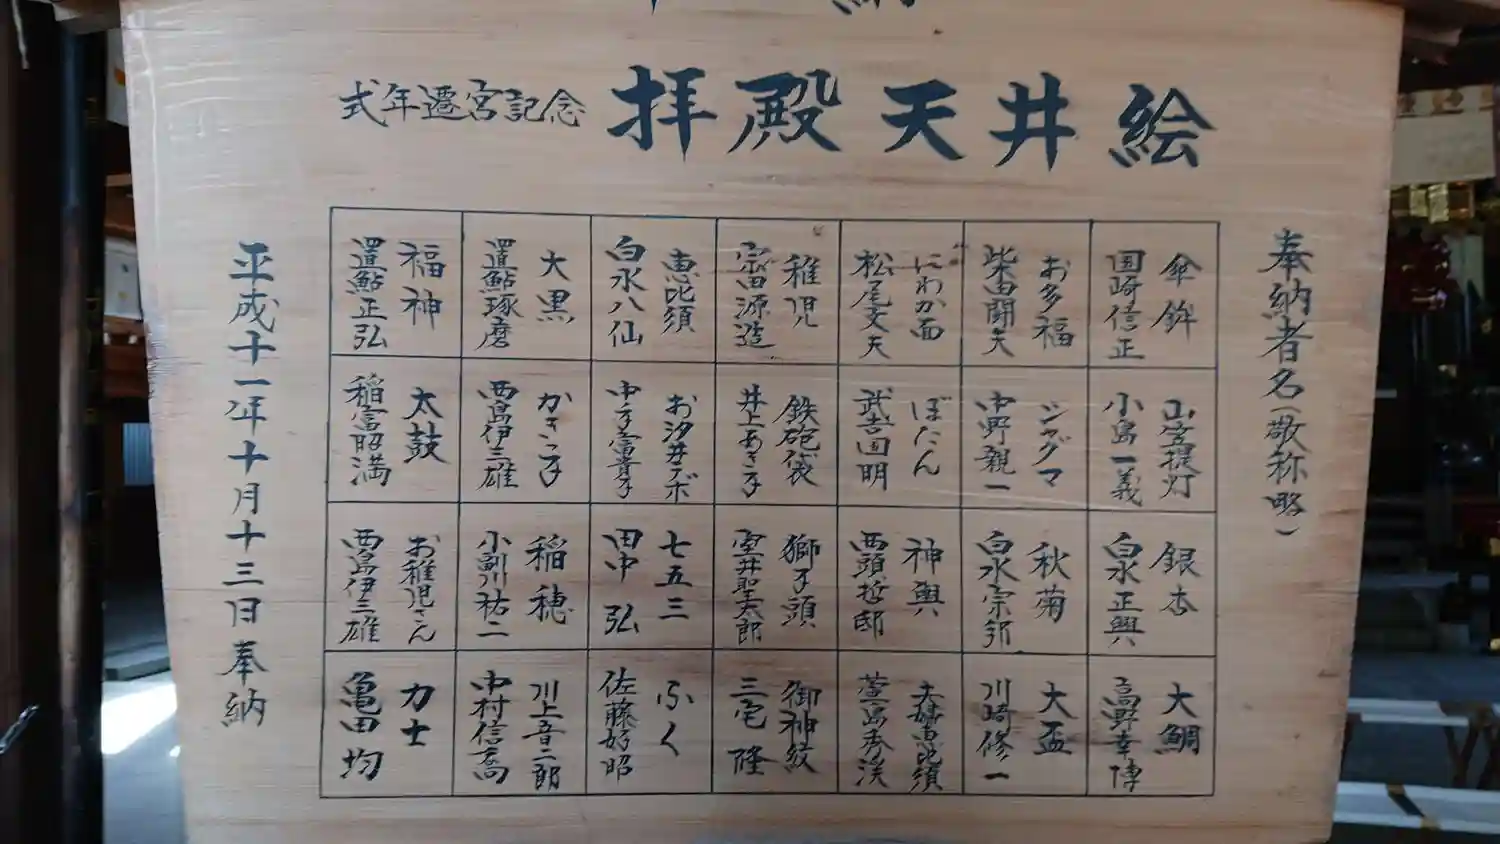 納
式年遷宮記念 拝殿天井絵
奉納者名(敬称略)
傘鉾
国崎信正
お多福
柴田闘矢
にわか面
松尾丈夫
稚児
宗田源造
恵比須
白水八仙
大黒
置鮎琢磨
福神
置鮎正弘
山笠提灯
小島一義
シャグマ
中野親一
ぼたん
武吉國明
鉄砲袋
井上あき子
お汐井テボ
中子富貴子
かきつ子
西島伊三雄
太鼓
稲富昭満
銀杏
白水正興
秋菊
白水宗邻
神輿
西頭哲郎
獅子頭
室井聖太郎
七五三
田中弘
稲穂
小副川祐二
お稚児さん
西島伊三雄
大鯛
高野幸博
大盃
川崎修一
夫婦恵比須
萱島秀渓
御神紋
三宅隆
ふく
佐藤好昭
川上音二郎
中村信喬
力士
亀田均
平成十一年十月十三日奉納